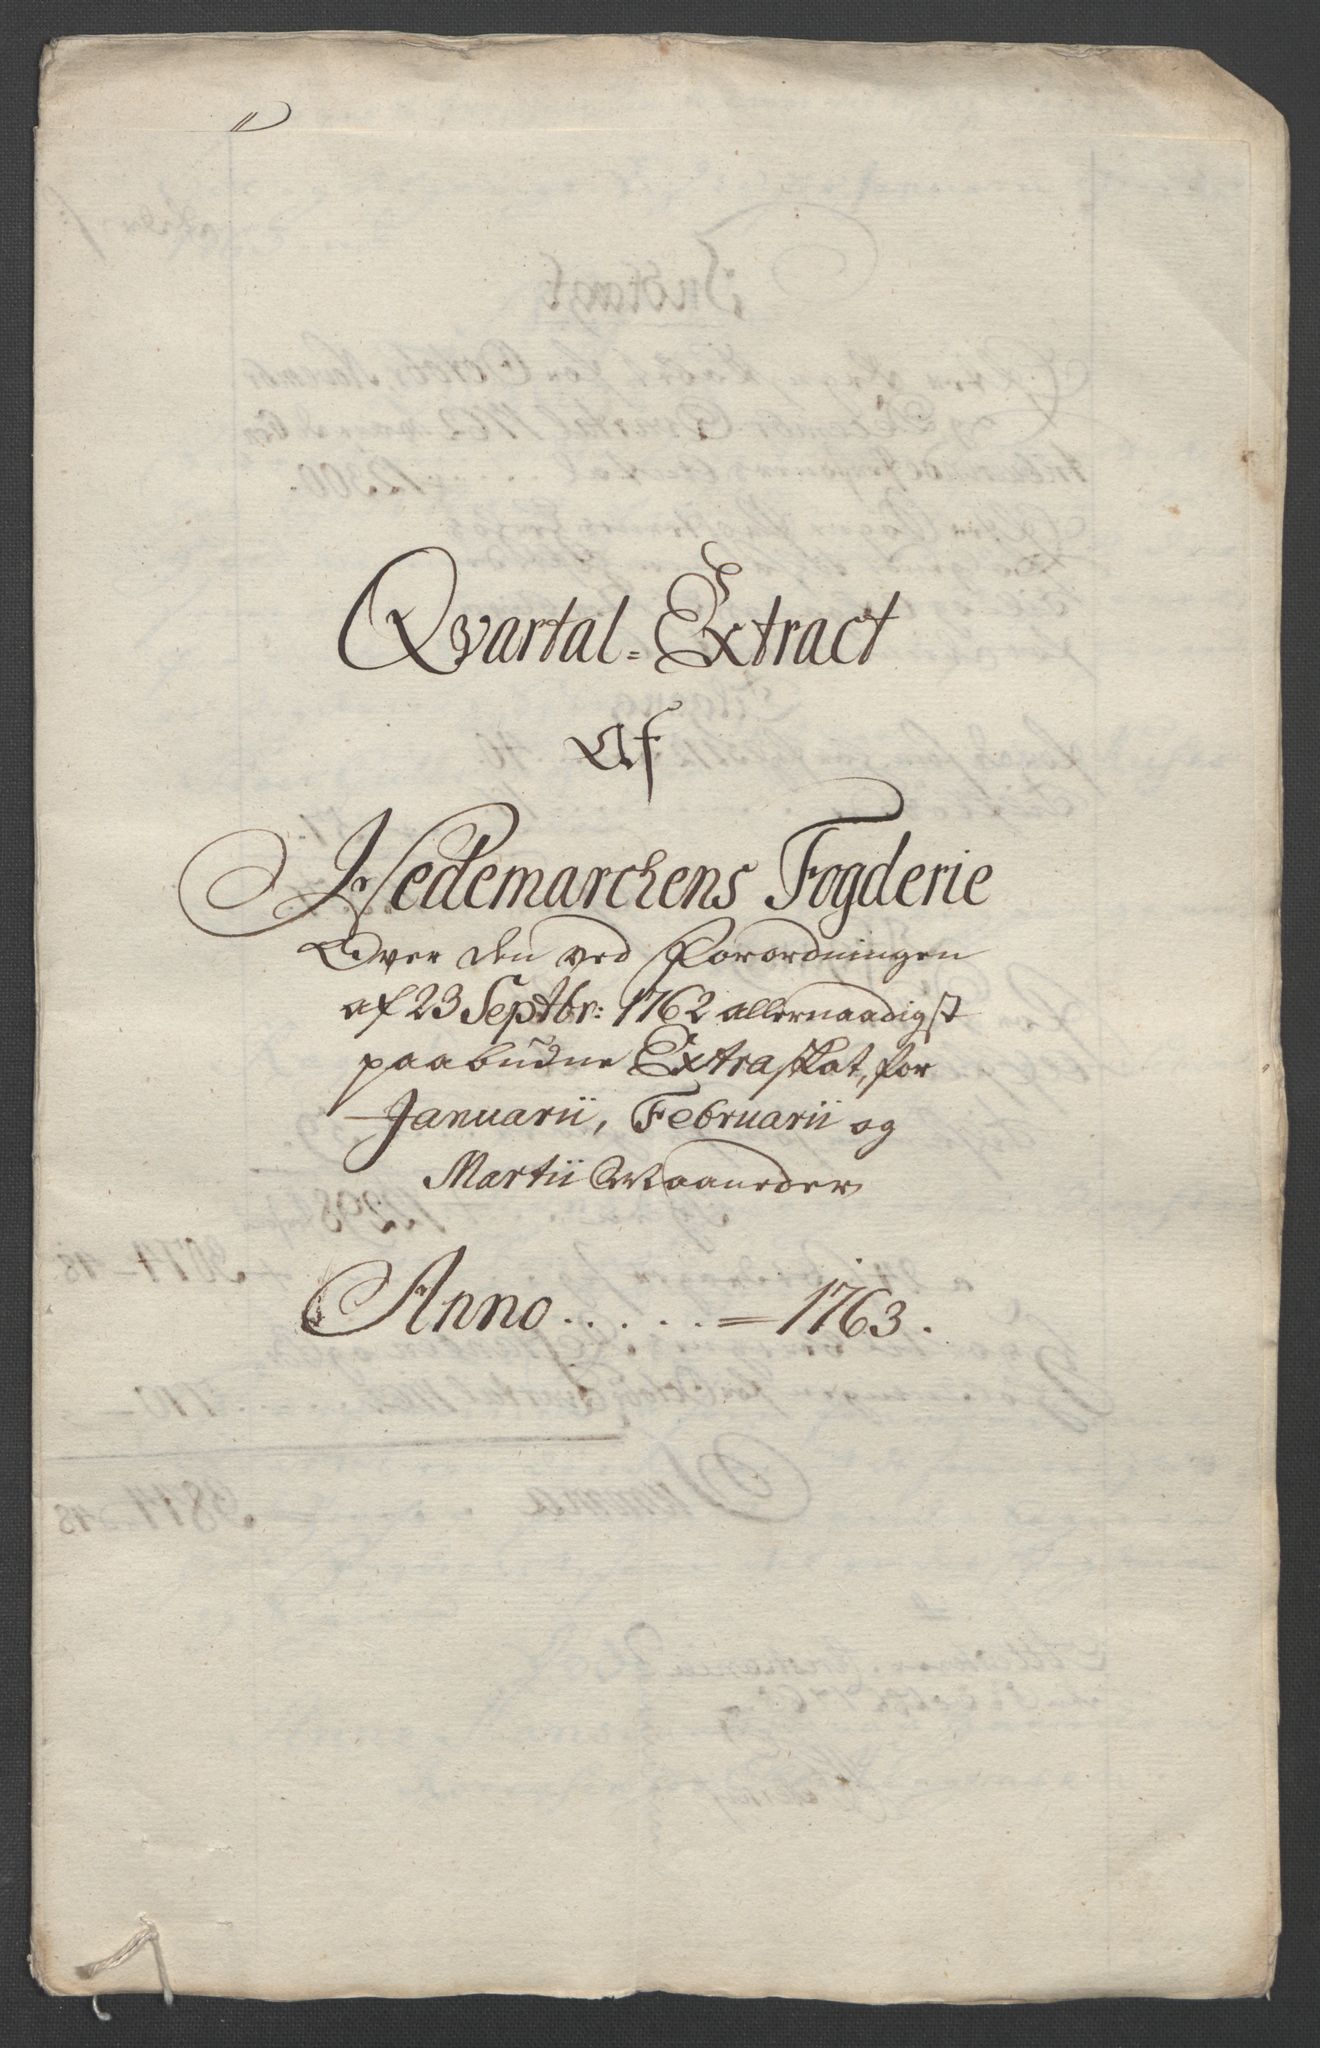 Qvartal=Extract
Af
Hedemarchens Fogderie
Over den ved Forordningen
af 23 Septbr: 1762 allernaadigst
paabudne Extraskat, for
Januarii, Februarii og
Martii Maaneder
Anno . . . . . = 1763.